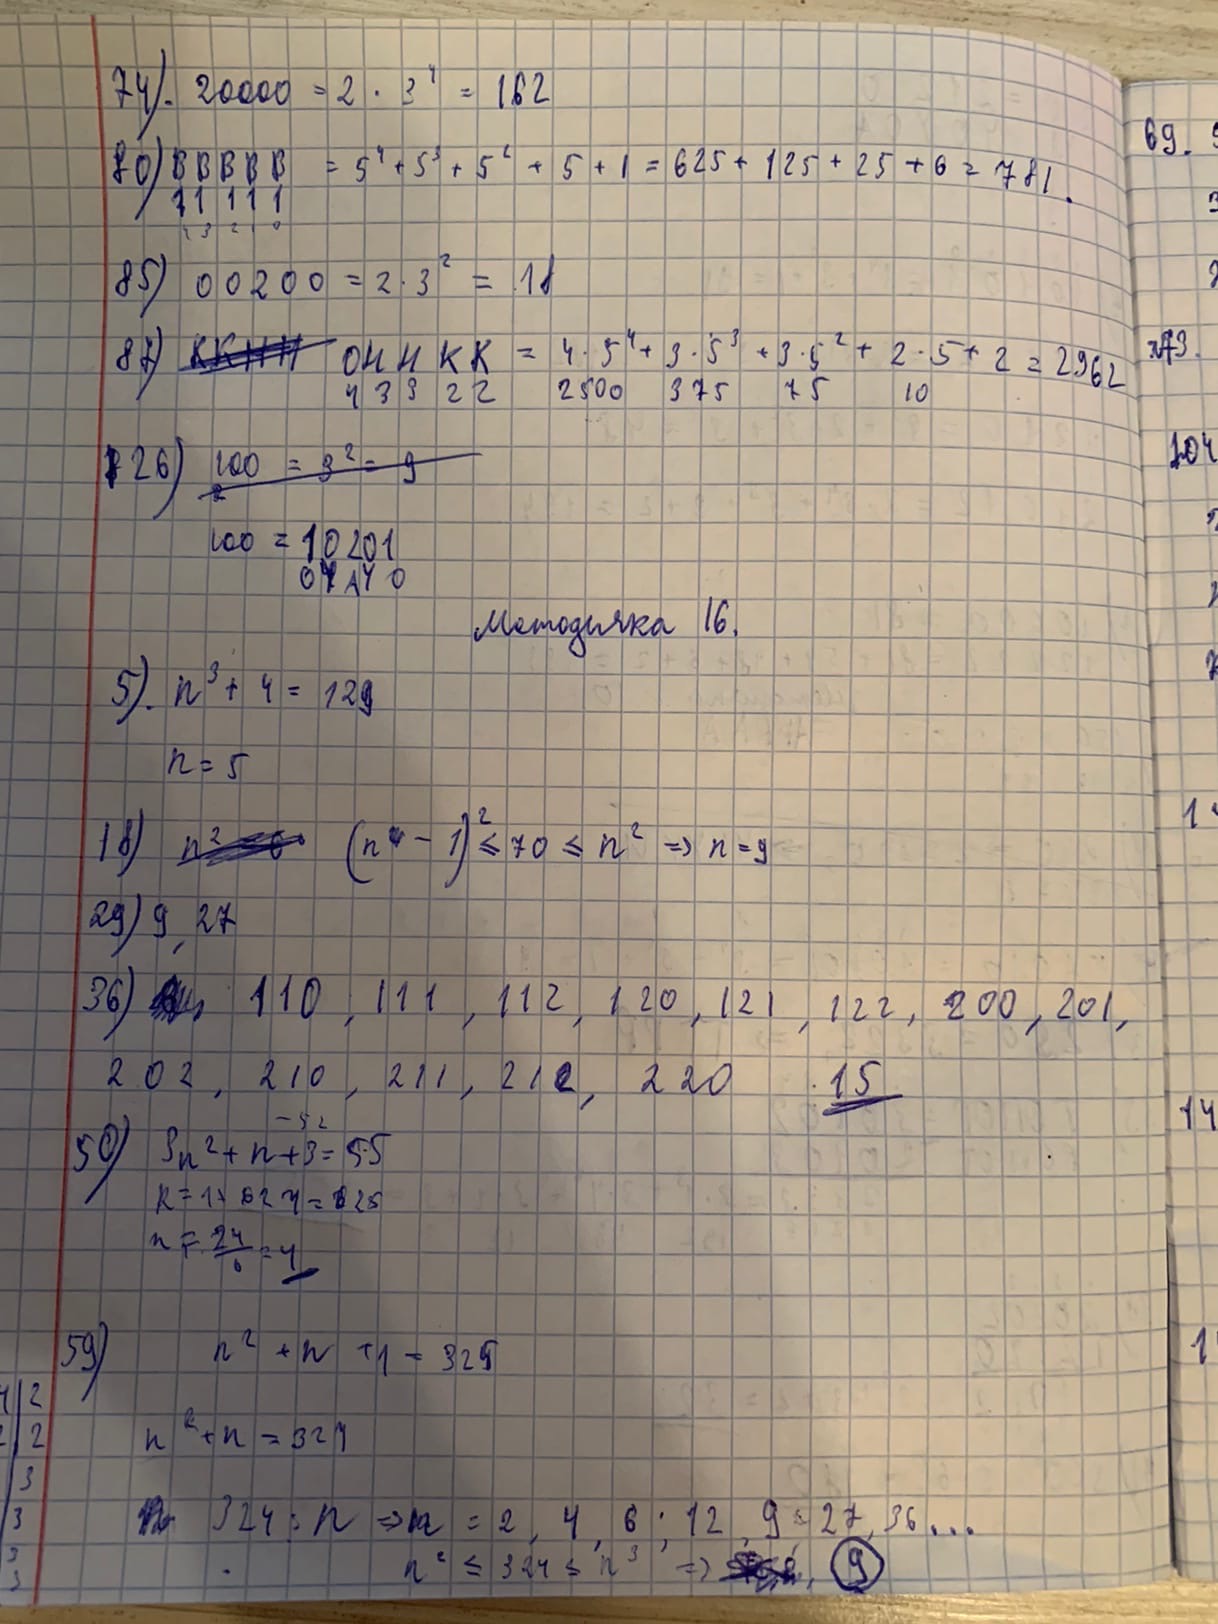 74). 20000 = 2 · 3⁴ = 162
80) B B B B B = 5⁴ + 5³ + 5² + 5 + 1 = 625 + 125 + 25 + 6 = 781.
1 1 1 1 1
4 3 2 1 0
85) 00200 = 2 · 3² = 18
87) ККНН ОННКК = 4·5⁴ + 3·5³ + 3·5² + 2·5 + 2 = 2962
4 3 3 2 2 2500 375 75 10
126) 100 = 3² = 9
100 = 10201
Методичка 16.
5). n³ + 4 = 129
n = 5
18) (n - 1)² ≤ 70 ≤ n² ⇒ n = 9
29) 9, 27
36) 110, 111, 112, 120, 121, 122, 200, 201,
202, 210, 211, 212, 220 15
-52
50) 3n² + n + 3 = 55
n = 24/6 = 4
59) n² + n + 1 = 325
n² + n = 324
324 : n ⇒ n = 2, 4, 6, 12, 9, 27, 36...
n² ≤ 324 ≤ n³ ⇒ 9
69.
73.
104
14